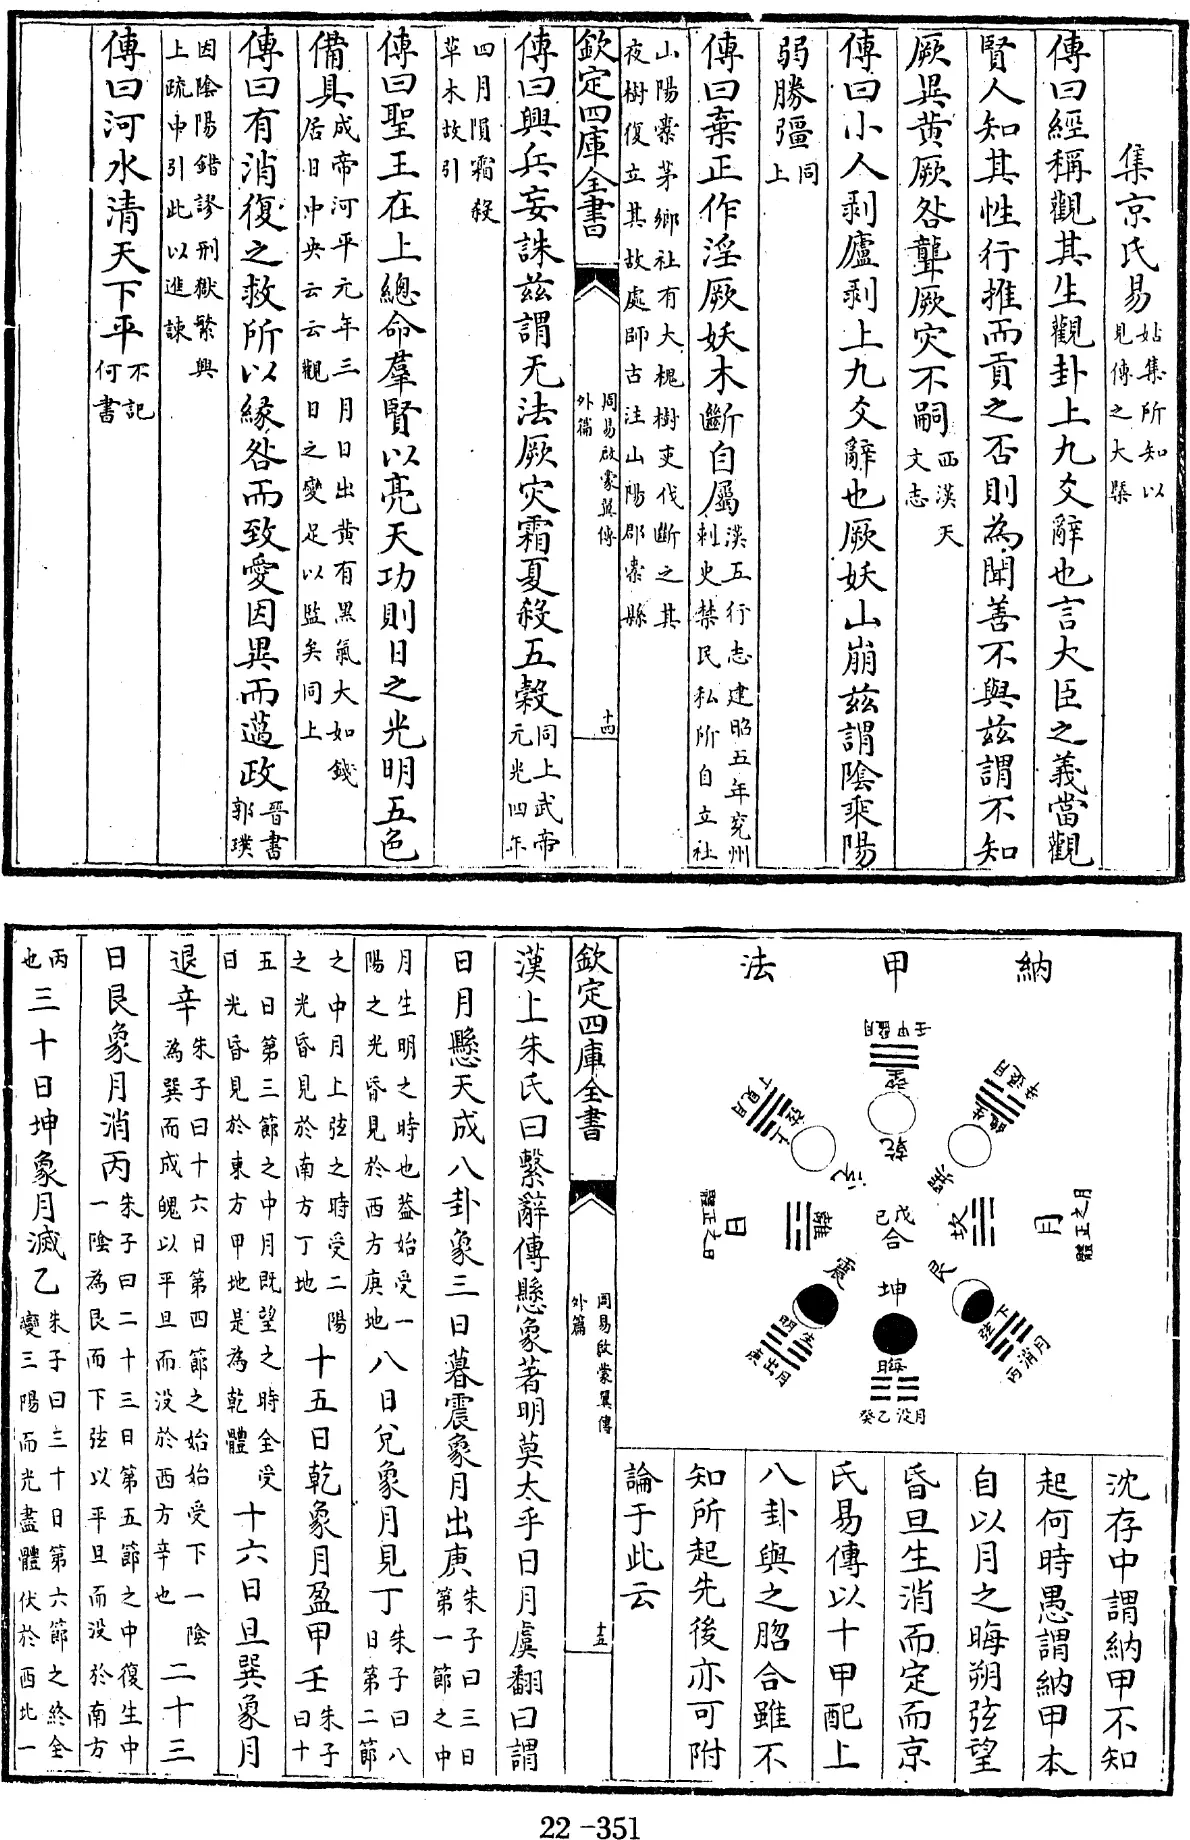 集京氏易姑集所知以見傳之大槩
傳曰經稱觀其生觀卦上九爻辭也言大臣之義當觀
賢人知其性行推而貢之否則為聞善不與茲謂不知
厥異黄厥咎聾厥灾不嗣西漢天文志
傳曰小人剥廬剥上九爻辭也厥妖山崩茲謂陰乘陽
弱勝彊同上
傳曰棄正作淫厥妖木斷自屬漢五行志建昭五年兖州刺史禁民私所自立社
山陽橐茅鄉社有大槐樹吏伐斷之其夜樹復立其故處師古注山陽郡橐縣
欽定四庫全書
周易啟蒙翼傳外篇
十四
傳曰興兵妄誅茲謂无法厥灾霜夏殺五穀同上武帝元光四年
四月隕霜殺草木故引
傳曰聖王在上總命羣賢以亮天功則日之光明五色
備具成帝河平元年三月日出黄有黑氣大如錢居日中央云云觀日之變足以監矣同上
傳曰有消復之救所以緣咎而致愛因異而邁政晋書郭璞
因陰陽錯謬刑獄繁興上疏中引此以進諫
傳曰河水清天下平不記何書
納甲法
壬甲盈月
望
乾
辛退月
巽
丁見月
上弦
兌
月
月之正體
坎
戊己合
離
日
日之正體
艮
下弦
丙消月
坤
晦
癸乙没月
震
生明
庚出月
沈存中謂納甲不知
起何時愚謂納甲本
自以月之晦朔弦望
昏旦生消而定而京
氏易傳以十甲配上
八卦與之脗合雖不
知所起先後亦可附
論于此云
欽定四庫全書
周易啟蒙翼傳外篇
十五
漢上朱氏曰繫辭傳懸象著明莫太乎日月虞翻曰謂
日月懸天成八卦象三日暮震象月出庚朱子曰三日第一節之中
月生明之時也葢始受一陽之光昏見於西方庚地八日兌象月見丁朱子曰八日第二節
之中月上弦之時受二陽之光昏見於南方丁地十五日乾象月盈甲壬朱子曰十
五日第三節之中月既望之時全受日光昏見於東方甲地是為乾體十六日旦巽象月
退辛朱子曰十六日第四節之始始受下一陰為巽而成魄以平旦而没於西方辛也二十三
日艮象月消丙朱子曰二十三日第五節之中復生中一陰為艮而下弦以平旦而没於南方
丙也三十日坤象月滅乙朱子曰三十日第六節之終全變三陽而光盡體伏於西北一
22-351